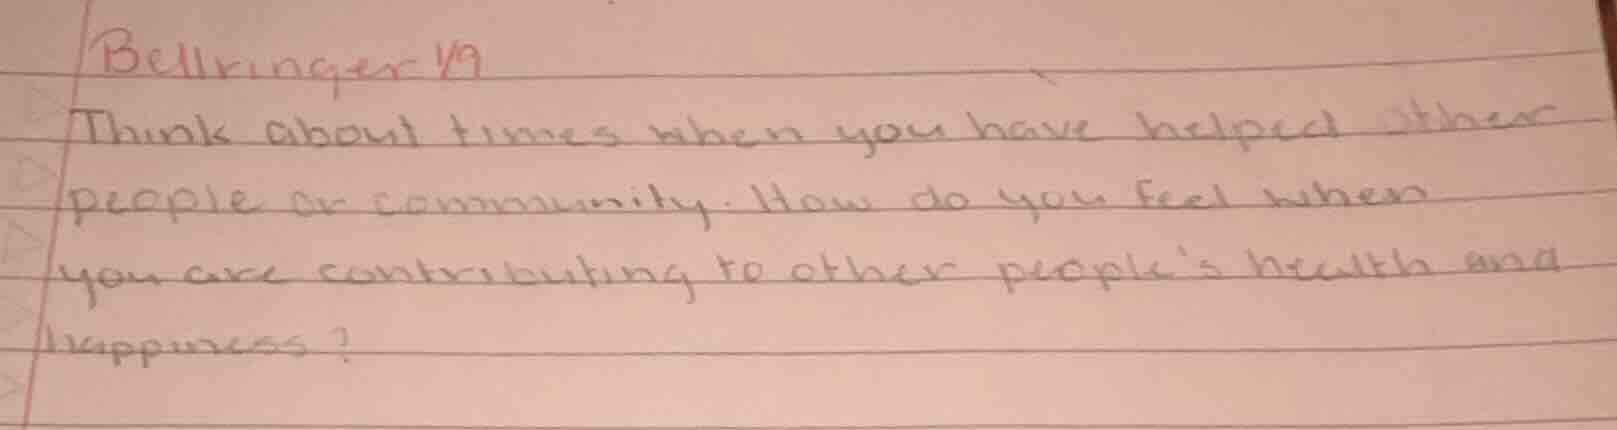 Bellringer 1/9
Think about times when you have helped other
people or community. How do you feel when
you are contributing to other people's health and
happiness?